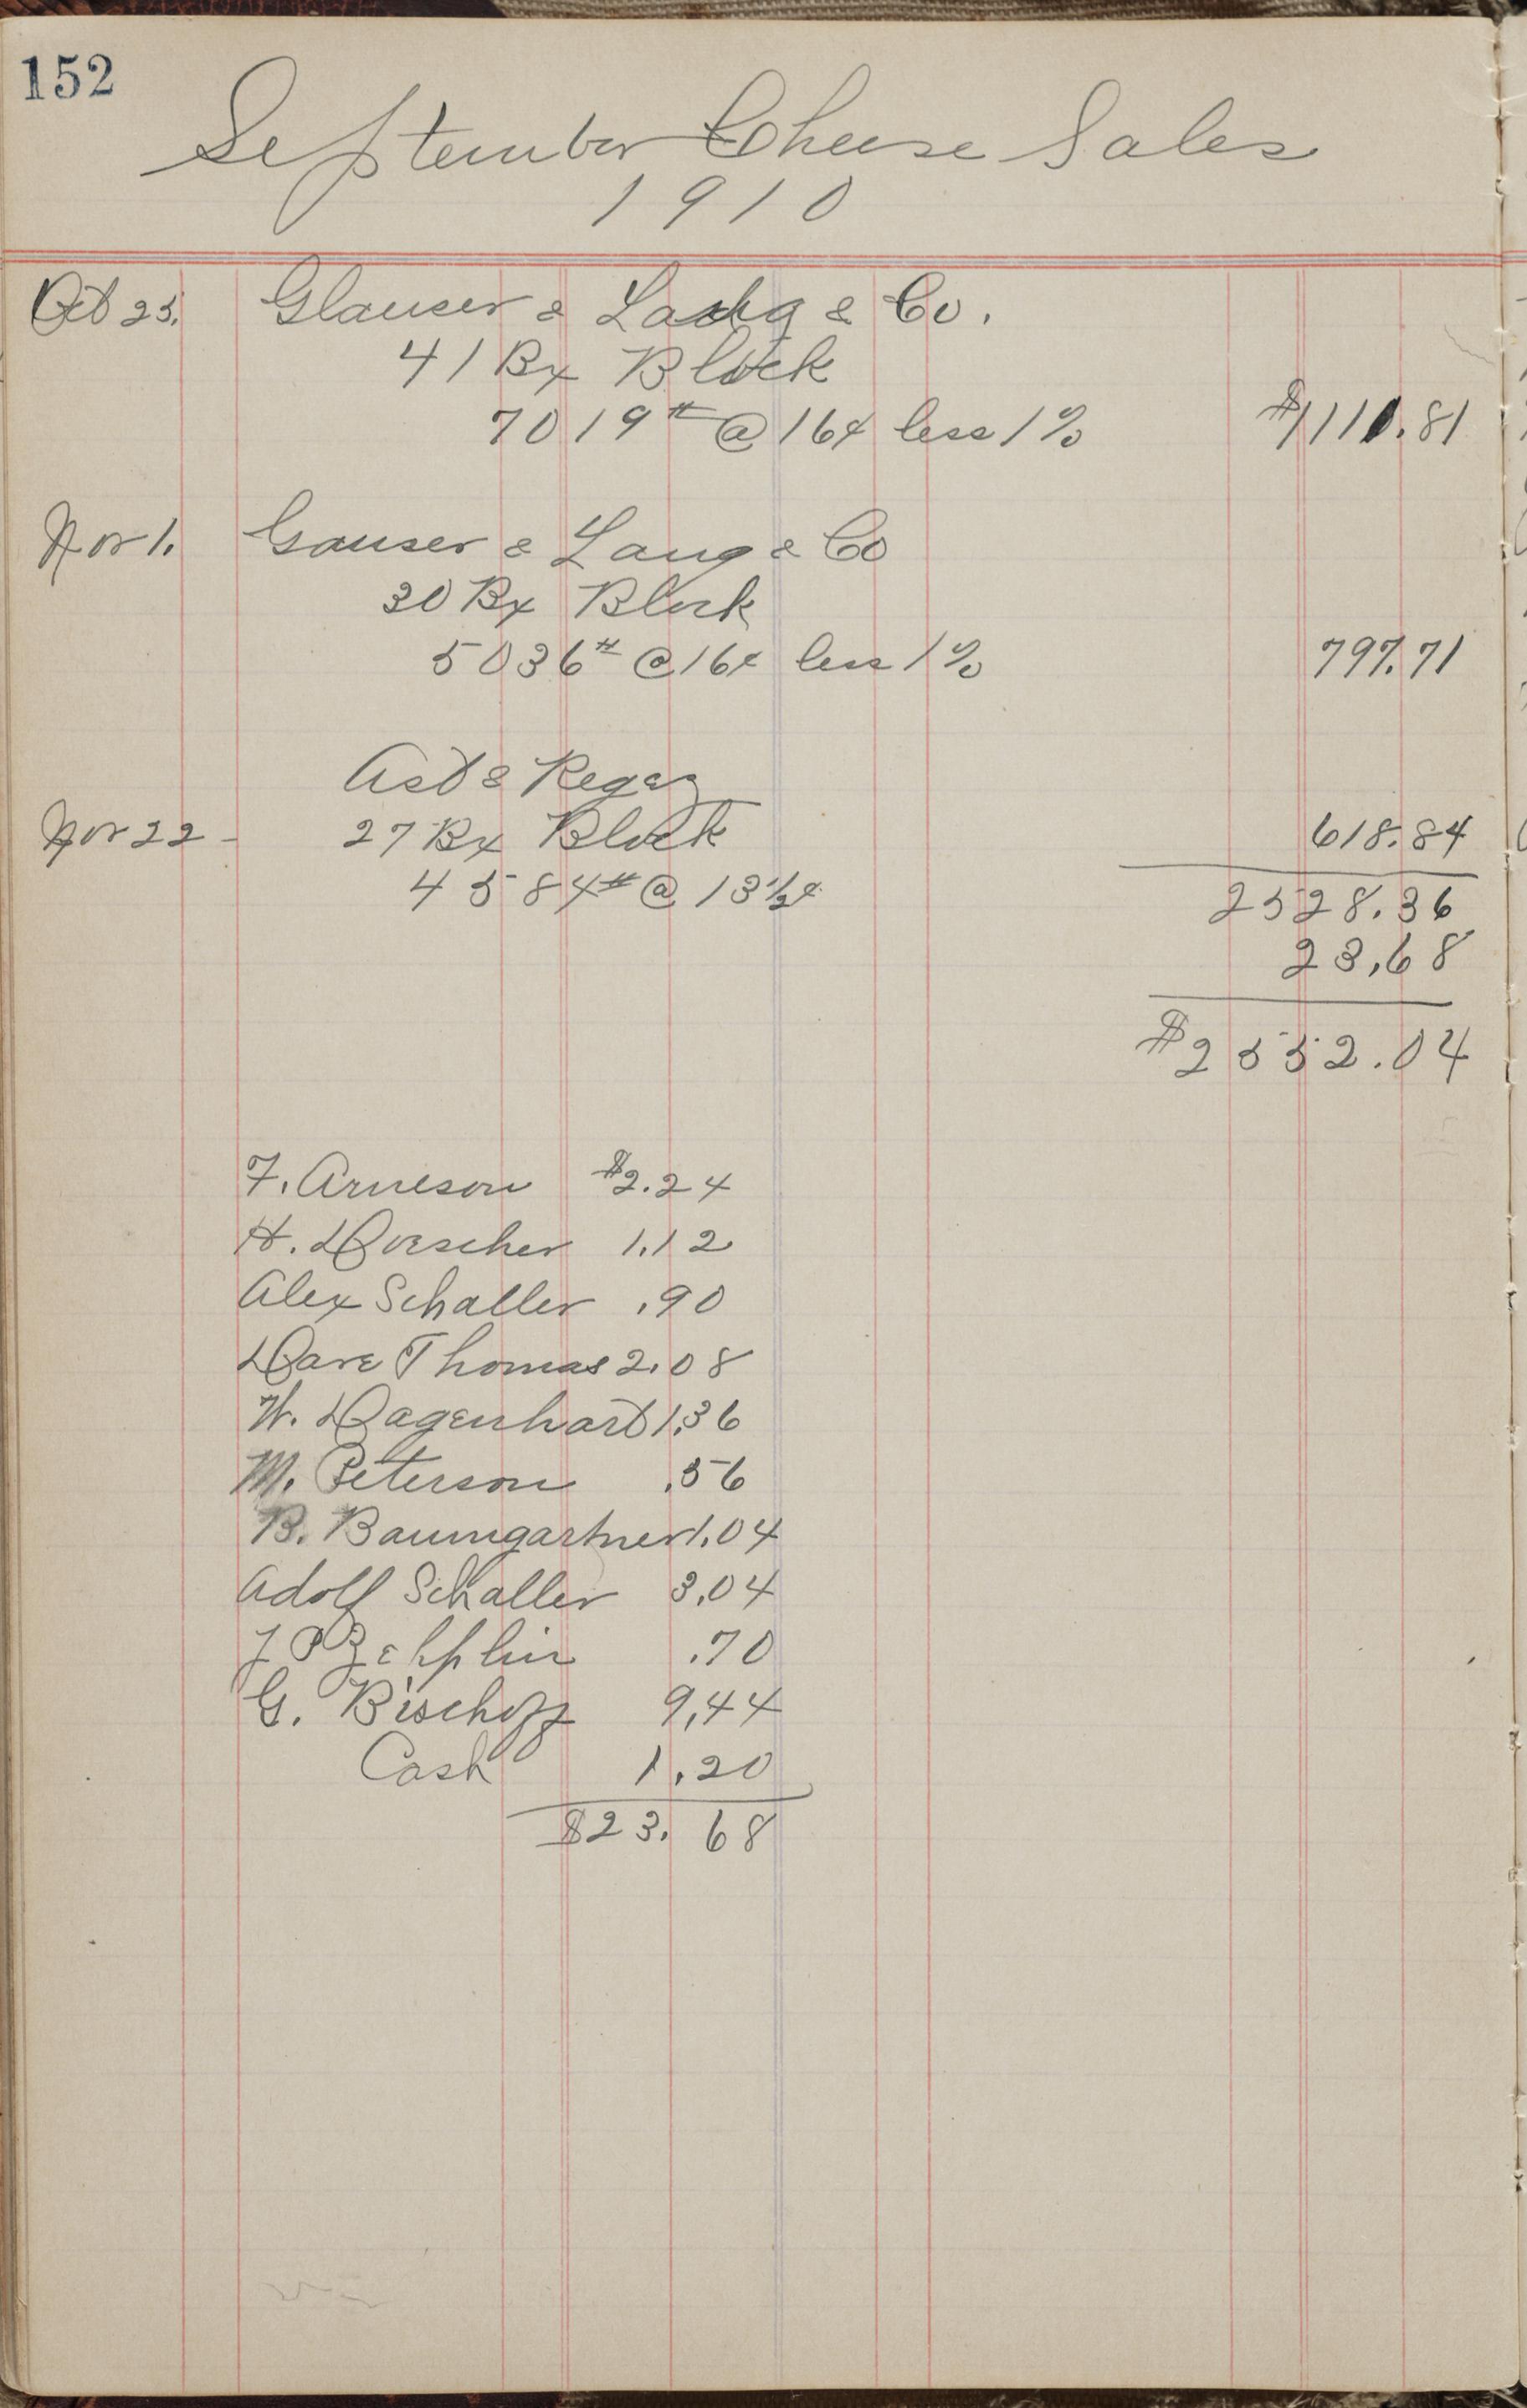 152
September Cheese Sales
1910
Oct 25. Glauser & Lang & Co.
41 Bx Block
7019# @ 16¢ less 1% $1111.81
Nov 1. Gauser & Lang & Co
30 Bx Block
5036# @ 16¢ less 1% 797.71
Ast & Regez
Nov 22 - 27 Bx Block 618.84
4584# @ 13½¢ 2528.36
23.68
$2552.04
F. Arneson $2.24
H. Doescher 1.12
Alex Schaller .90
Dave Thomas 2.08
W. Dagenhart 1.36
M. Peterson .56
B. Baumgartner 1.04
Adolf Schaller 3.04
.70
G. Bischoff 9.44
Cash 1.20
$23.68